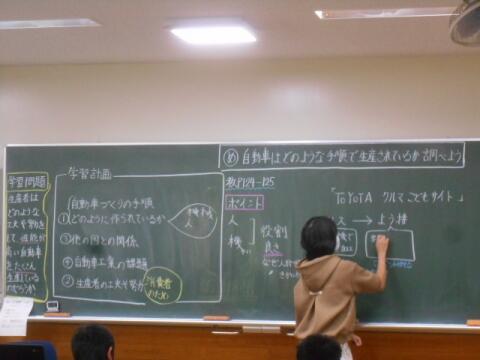 め 自動車はどのような手順で生産されているか調べよう
学習問題
生産者は
どのような
工夫や努力
をして、性能が
高い自動車
をたくさん
生産している
のだろうか
学習計画
自動車づくりの手順
①どのように作られているか
人
機械
③他の国との関係
④自動車工業の課題
②生産者の工夫や努力
消費者
のため
教P124-125
ポイント
人
機
役割
良さ
「TOYOTA クルマこどもサイト」
ス→よう接